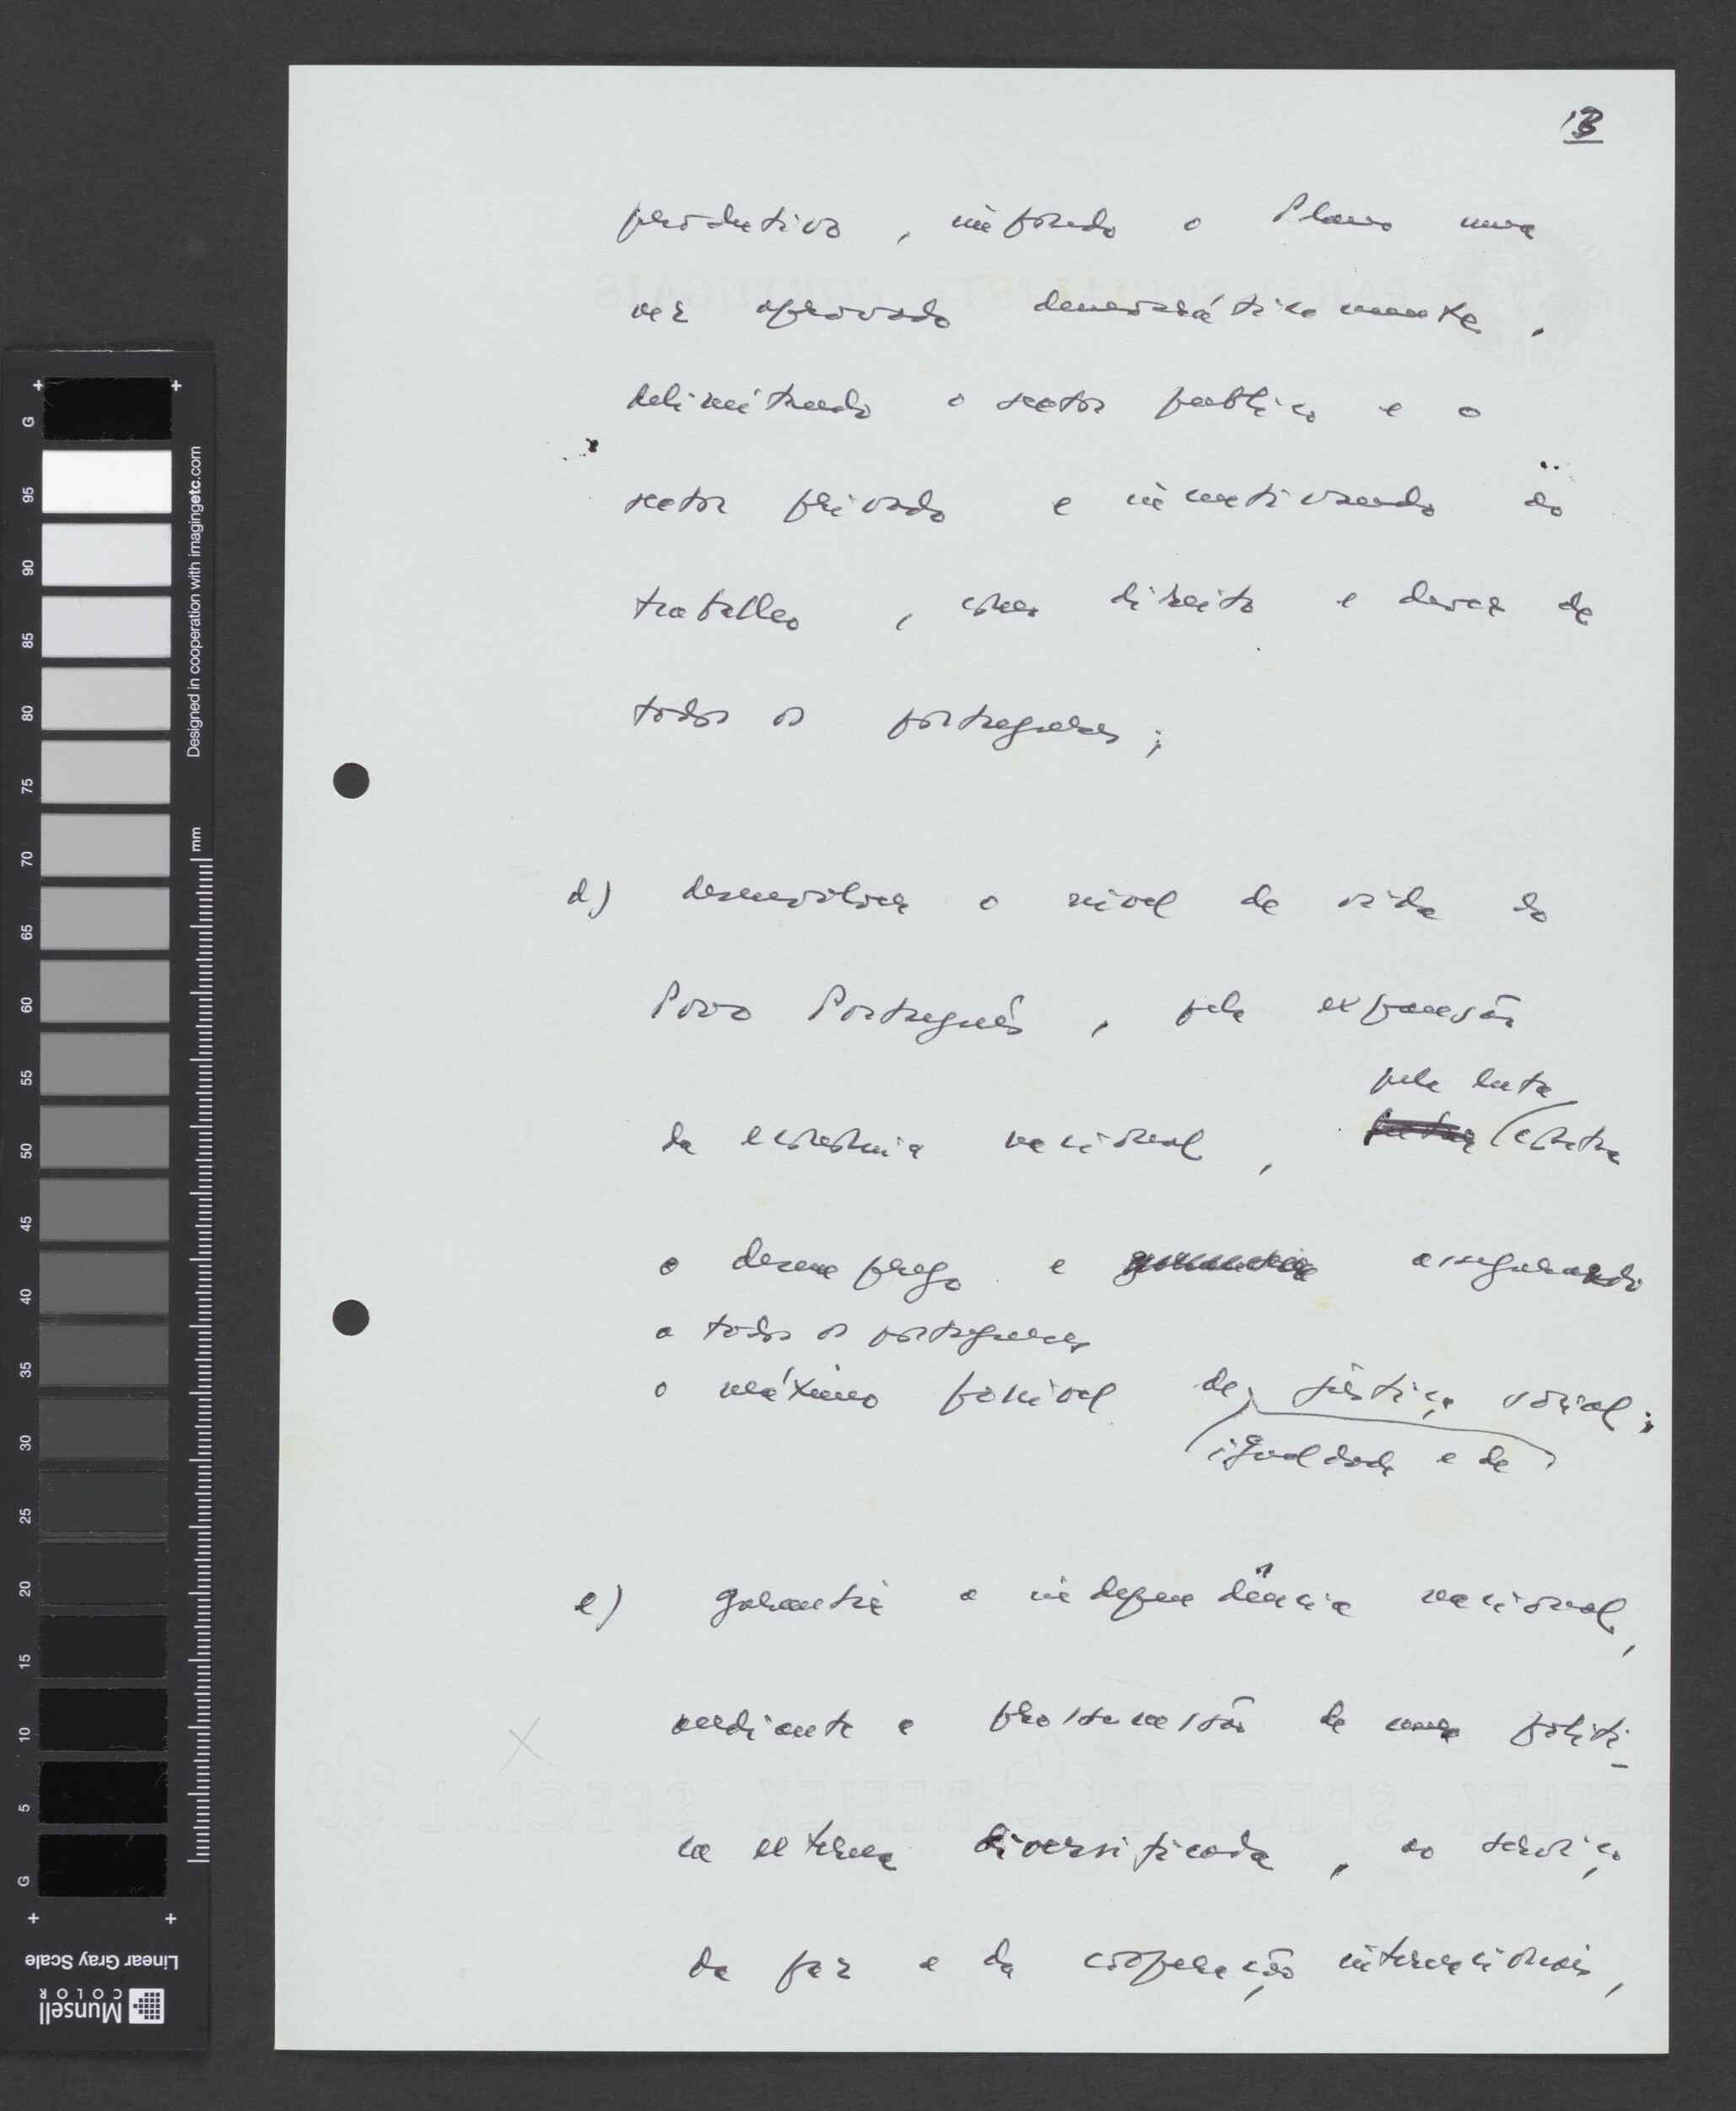 13
produtivo, impondo o Plano uma
vez aprovado democráticamente,
delimitando o sector publico e o
sector privado e incentivando ao
trabalho, como direito e dever de
todos os portugueses;
d) desenvolver o nivel de vida do
Povo Português, pela expansão
pela luta
da economia nacional, lutar contra
o desemprego e garantir assegurando
a todos os portugueses
o máximo possivel de justiça social;
igualdade e de
e) garantir a independência nacional,
mediante a prossecussão de uma politi-
ca externa diversificada, ao serviço
da paz e da cooperação internacionais,
G
95
90
85
80
75
70
65
60
55
50
45
40
35
30
25
20
15
10
5
G
Designed in cooperation with imagingetc.com
mm
Linear Gray Scale
Munsell
COLOR